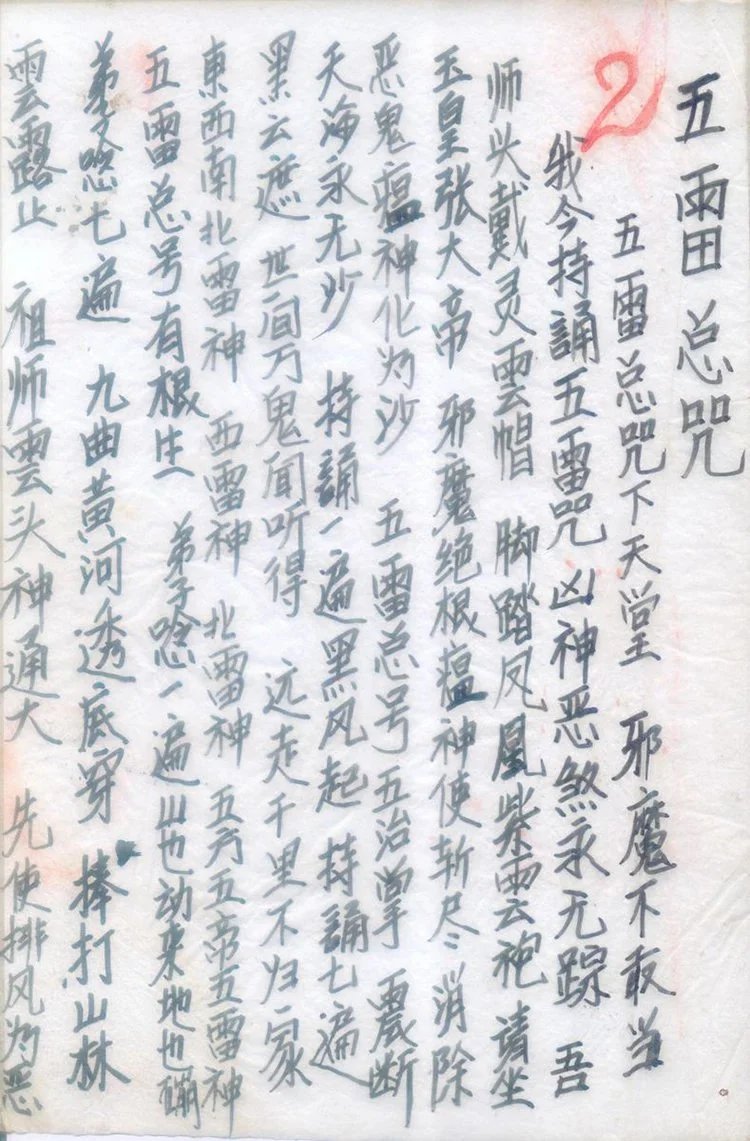 五雷总咒
2
五雷总咒下天堂 邪魔不敢当
我今持誦五雷咒 凶神恶煞永无踪 吾
师头戴灵雲帽 脚踏凤凰紫雲袍 請坐
玉皇张大帝 邪魔绝根瘟神使斩尽消除
恶鬼瘟神化为沙 五雷总号五治掌 震断
天海永无沙 持誦一遍黑风起 持誦七遍
黑云遮 世间万鬼闻听得 远走千里不归家
東西南北雷神 西雷神 北雷神 五方五帝五雷神
五雷总号有根生 弟子念一遍山也动来地也硼
弟子念七遍 九曲黄河透底穿 捧打山林
雲露止 祖师雲头神通大 先使排风为恶